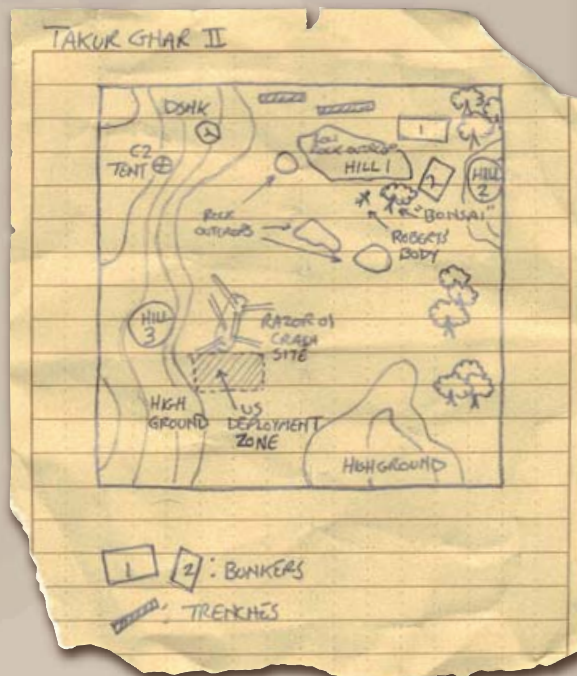 TAKUR GHAR II
DSHK
C2
TENT
1
ROCK OUTCROP
HILL 1
2
HILL
2
"BONSAI"
ROBERTS'
BODY
ROCK
OUTCROPS
HILL
3
RAZOR 01
CRASH
SITE
HIGH
GROUND
US
DEPLOYMENT
ZONE
HIGH GROUND
1 2 : BUNKERS
: TRENCHES